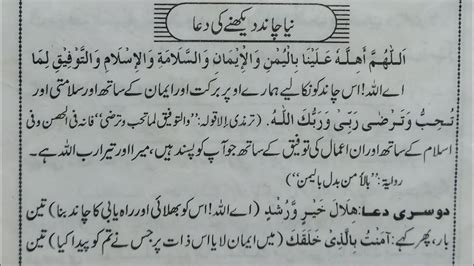 نیا چاند دیکھنے کی دعا
اَللّٰهُمَّ أَهِلَّهُ عَلَيْنَا بِالْيُمْنِ وَالْإِيْمَانِ وَالسَّلَامَةِ وَالْإِسْلَامِ وَالتَّوْفِيْقِ لِمَا
اے اللہ! اس چاند کو نکالیے ہمارے اوپر برکت اور ایمان کے ساتھ اور سلامتی اور
تُحِبُّ وَتَرْضٰى رَبِّيْ وَرَبُّكَ اللّٰهُ. (ترمذی إلا قوله: ”والتوفيق لما تحب وترضى“ فانه فى الحصن وفى
اسلام کے ساتھ اور ان اعمال کی توفیق کے ساتھ جو آپ کو پسند ہیں، میرا اور تیرا رب اللہ ہے۔
رواية: ”بالأمن بدل باليمن“)
دوسری دعا: هِلَالَ خَيْرٍ وَّرُشْدٍ (اے اللہ! اس کو بھلائی اور راہ یابی کا چاند بنا) تین
بار، پھر کہے: آمَنْتُ بِالَّذِيْ خَلَقَكَ (میں ایمان لایا اس ذات پر جس نے تم کو پیدا کیا) تین